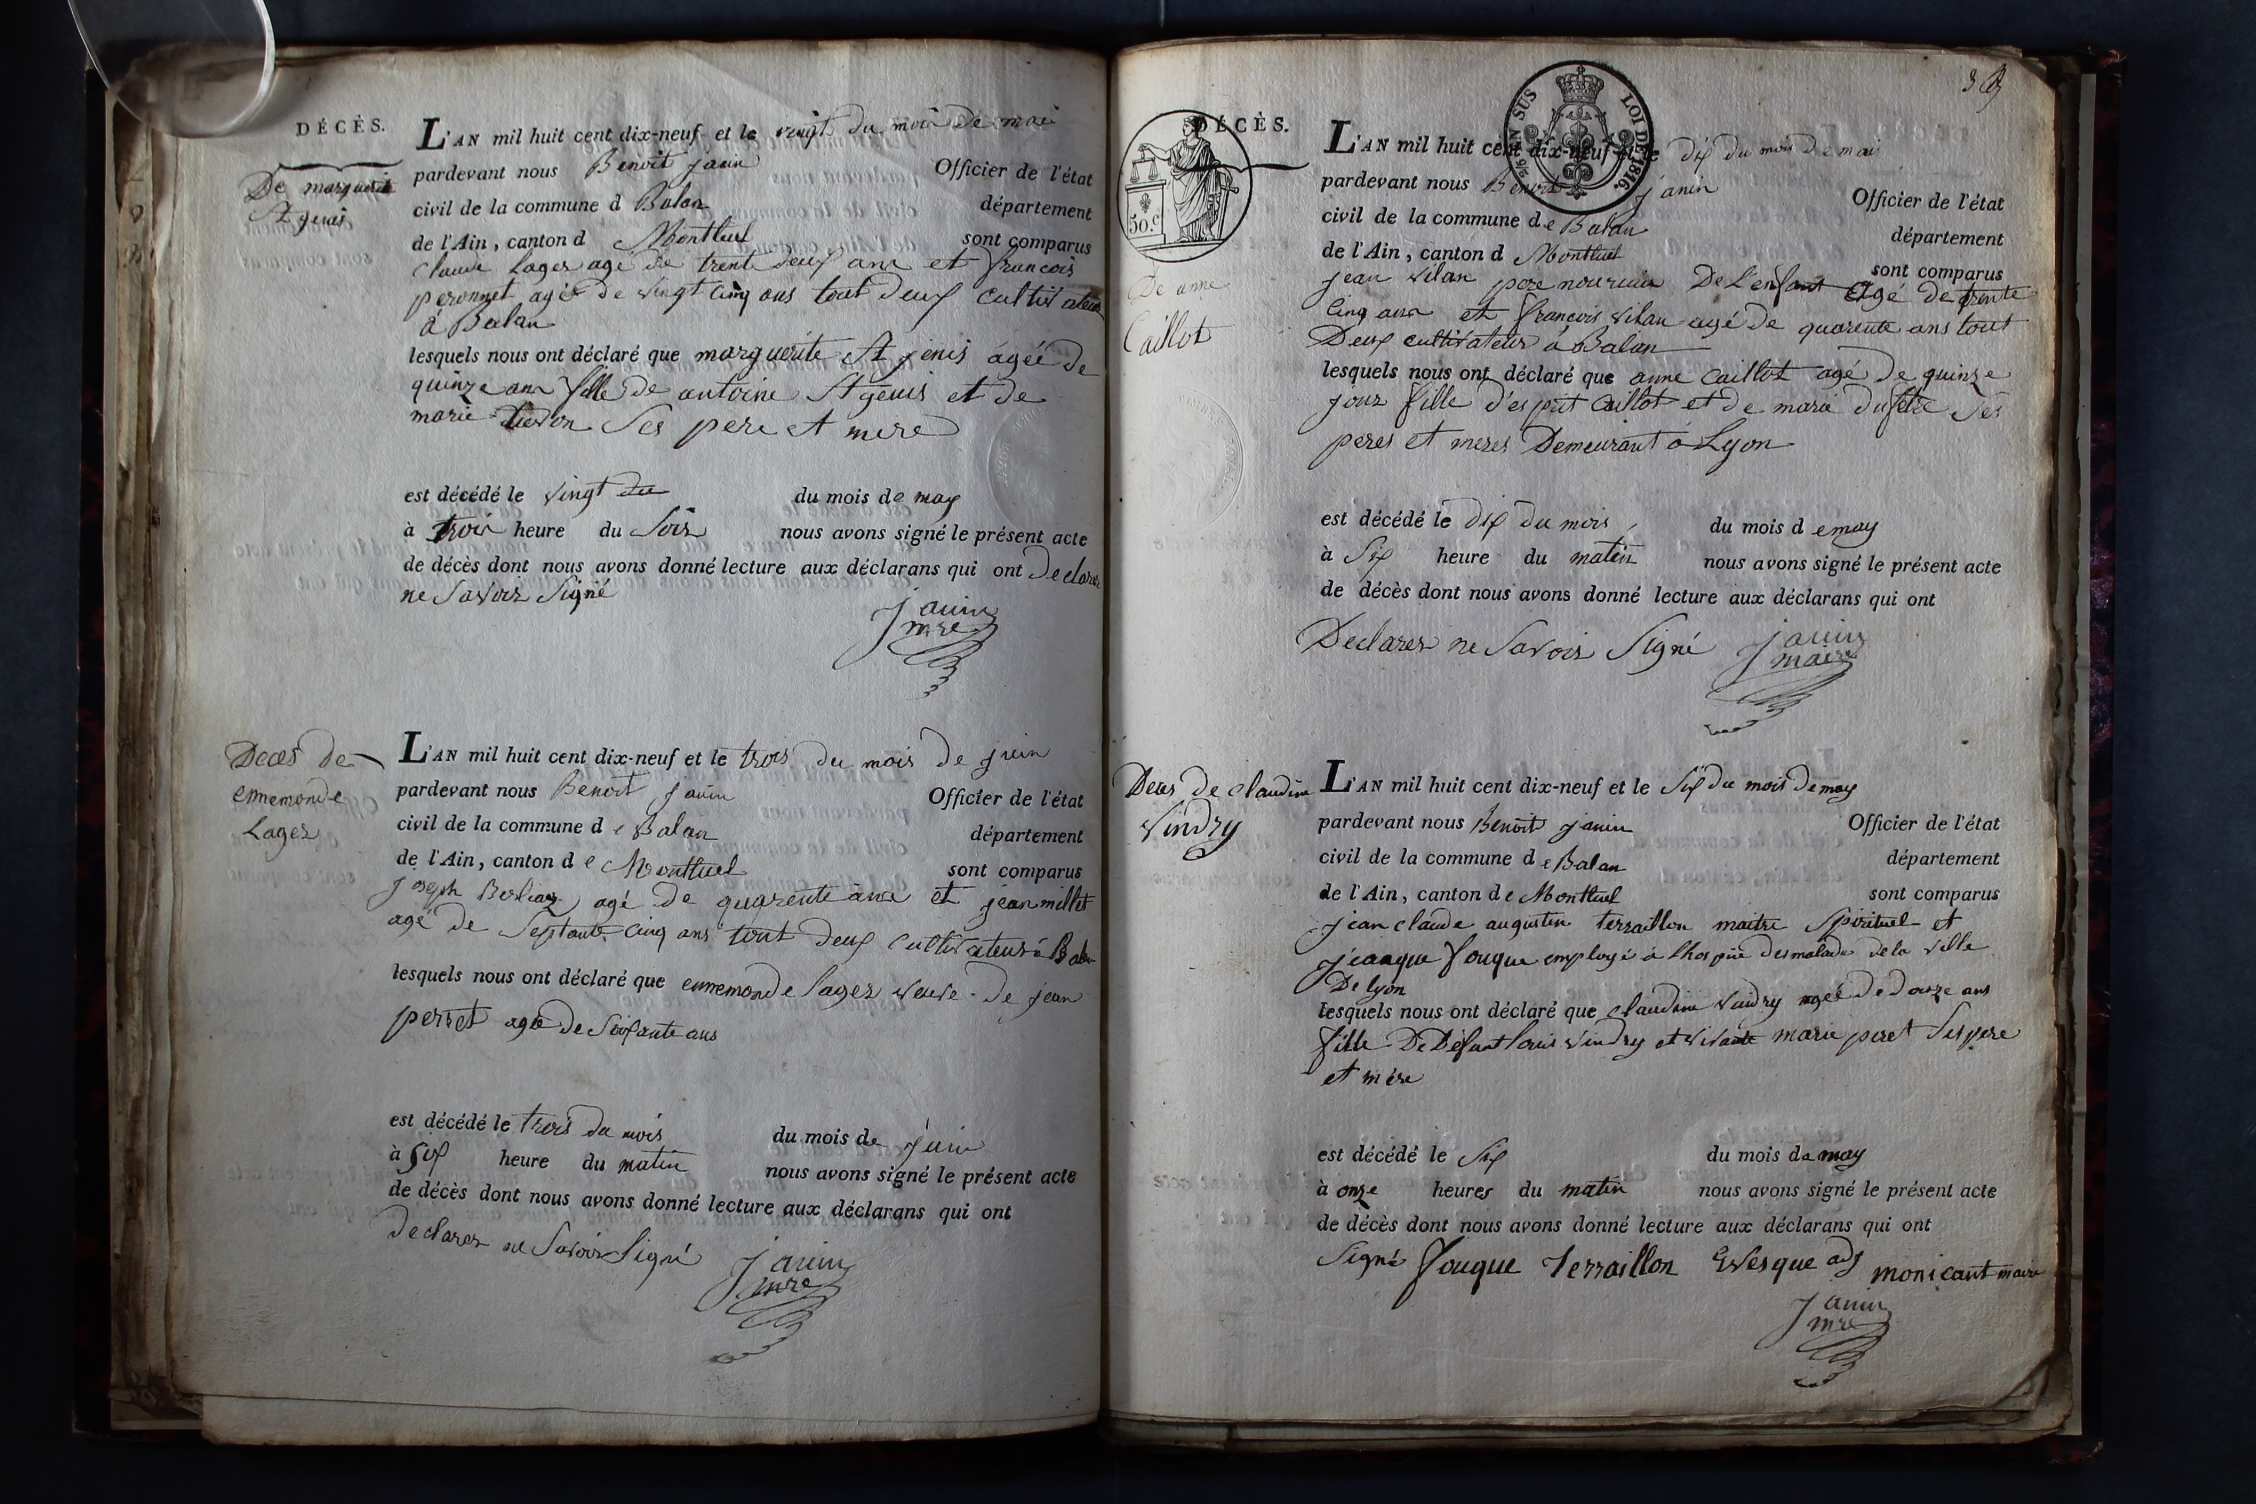 DÉCÈS.
De marguerite
St genis
L'AN mil huit cent dix-neuf et le vingt du mois de mai
pardevant nous Benoit janin Officier de l'état
civil de la commune d Balan département
de l'Ain, canton d Montluel sont comparus
Claude Lager agé de trente deux ans et francois
peronnet agé de vingt cinq ans tout deux cultivateur
à Balan
lesquels nous ont déclaré que marguerite St jenis agée de
quinze ans fille de antoine St genis et de
marie ses pere et mere
est décédé le vingt du du mois de may
à trois heure du soir nous avons signé le présent acte
de décès dont nous avons donné lecture aux déclarans qui ont declarer
ne savoir signé
janin
mre
Deces de
ennemonde
Lager
L'AN mil huit cent dix-neuf et le trois du mois de juin
pardevant nous Benoit janin Officier de l'état
civil de la commune d e Balan département
de l'Ain, canton d e Montluel sont comparus
joseph Berliaz agé de quarente ans et jean millet
agé de septante cinq ans tout deux cultivateur à Balan
lesquels nous ont déclaré que ennemonde lager veuve de jean
perret agée de soixante ans
est décédé le trois du mois du mois de juin
à six heure du matin nous avons signé le présent acte
de décès dont nous avons donné lecture aux déclarans qui ont
declarer ne savoir signé
janin
mre
DÉCÈS.
50.c
EN SUS LOI DE 1816.
De anne
Caillot
L'AN mil huit cent dix-neuf et le dix du mois de mai
pardevant nous Benoit janin Officier de l'état
civil de la commune d e Balan département
de l'Ain, canton d Montluel sont comparus
jean vilan pere nouricier De l'enfant agé de trente
cinq ans et francois vilan agé de quarente ans tout
Deux cultivateur à Balan
lesquels nous ont déclaré que anne caillot agé de quinze
jour fille d'esprit caillot et de marie ses
peres et meres Demeurant à Lyon
est décédé le dix du mois du mois d e may
à six heure du matin nous avons signé le présent acte
de décès dont nous avons donné lecture aux déclarans qui ont
Declarer ne savoir signé
janin
maire
Deces de claudine
vindry
L'AN mil huit cent dix-neuf et le six du mois de may
pardevant nous Benoit janin Officier de l'état
civil de la commune d e Balan département
de l'Ain, canton d e Montluel sont comparus
jean claude augustin terraillon maitre spirituel et
fouque employé à lhospice des malade de la ville
De lyon
lesquels nous ont déclaré que claudine vindry agée de douze ans
fille De Défunt louis vindry et vivante marie peret ses pere
et mère
est décédé le six du mois de may
à onze heures du matin nous avons signé le présent acte
de décès dont nous avons donné lecture aux déclarans qui ont
signé fouque terraillon Evesque adj monicault maire
janin
mre